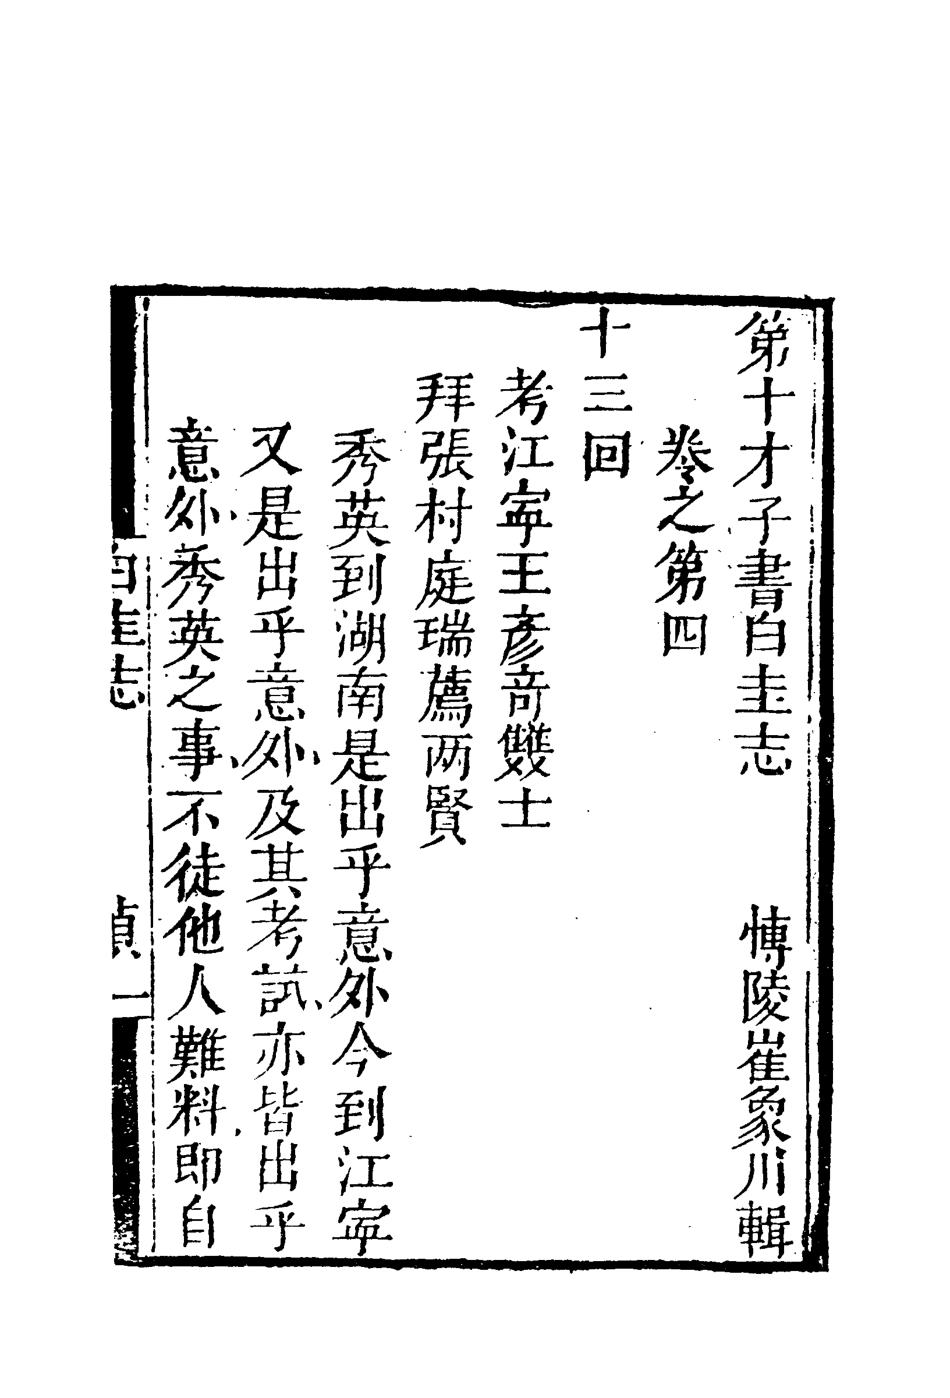 第十才子書白圭志　　愽陵崔象川輯
卷之第四
十三回
考江寜王彥竒雙士
拜張村庭瑞薦两賢
秀英到湖南是出乎意外今到江寜
又是出乎意外、及其考試、亦皆出乎
意外、秀英之事、不徒他人難料、即自
白圭志　　貞一